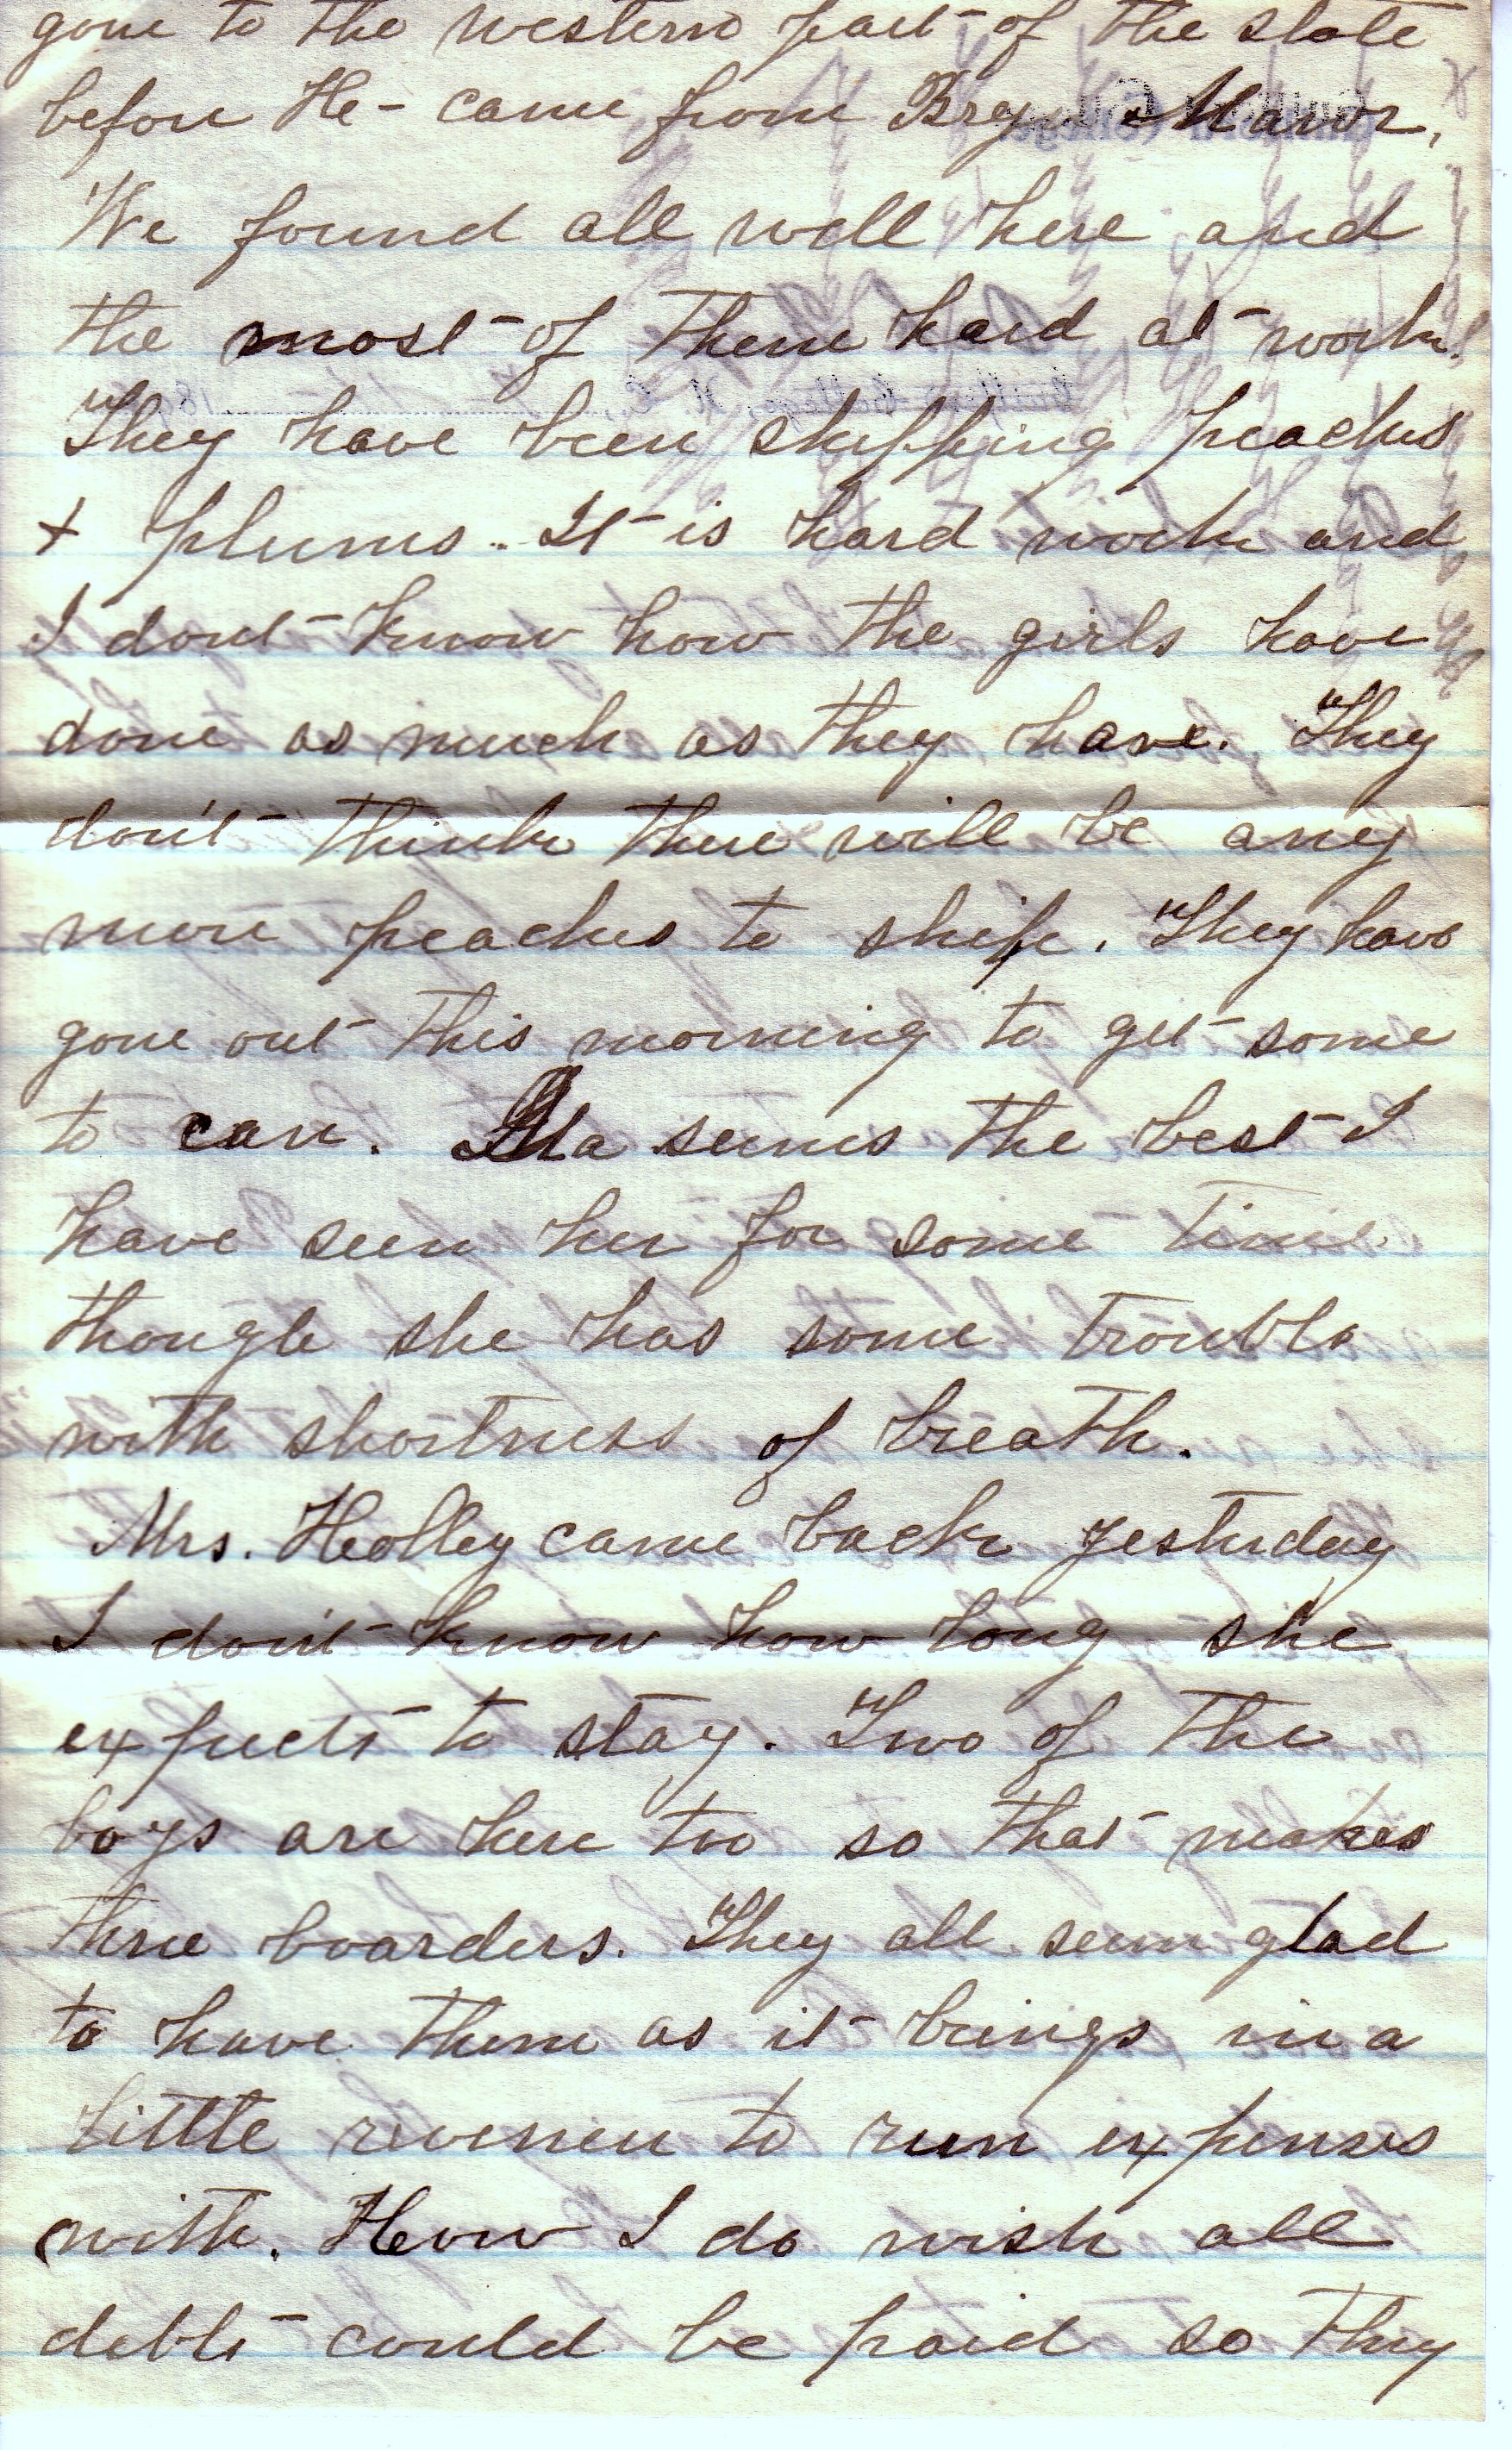 gone to the western part of the state
before He - came from Bryn Mawr,
We found all well here and
the most of them hard at work.
They have been shipping peaches
+ plums. It is hard work and
I dont know how the girls have
done as much as they have. They
don't think there will be any
more peaches to ship. They have
gone out this morning to get some
to can. Ma seems the best I
have seen her for some time
though she has some trouble
with shortness of breath.
Mrs. Holley came back yesterday
I don't know how long she
expects to stay. Two of the
boys are here too so that makes
three boarders. They all seem glad
to have them as it brings in a
little revenue to run expenses
with. How I do wish all
debts could be paid so they